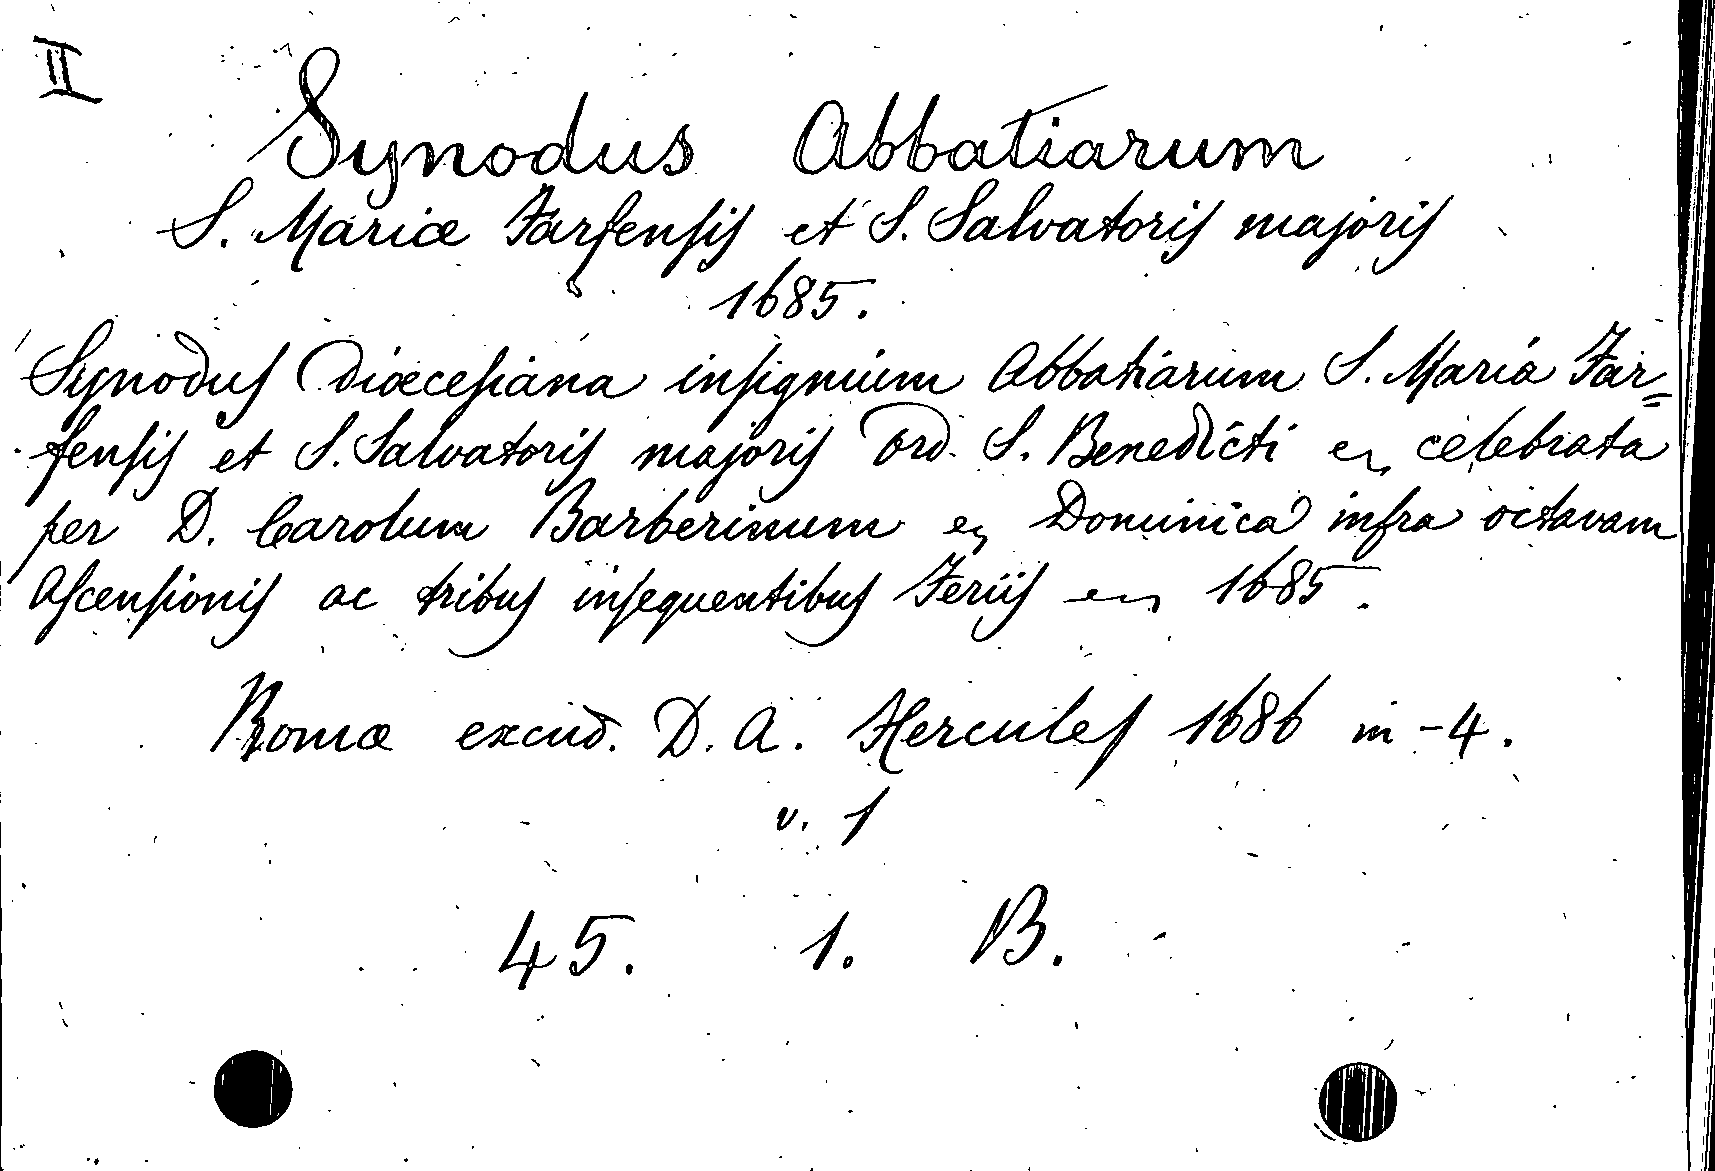 II
Synodus Abbatiarum
S. Mariæ Farfensis et S. Salvatoris majoris
1685.
Synodus Diœcesiana insignium Abbatiarum S. Maria Far=
fensis et S. Salvatoris majoris Ord. S. Benedicti celebrata
per D. Carolum Barberinum Dominica infra octavam
Ascensionis ac tribus insequentibus Feriis 1685.
Romæ excud. D. A. Hercules 1686 in-4.
v. 1
45. 1. B.